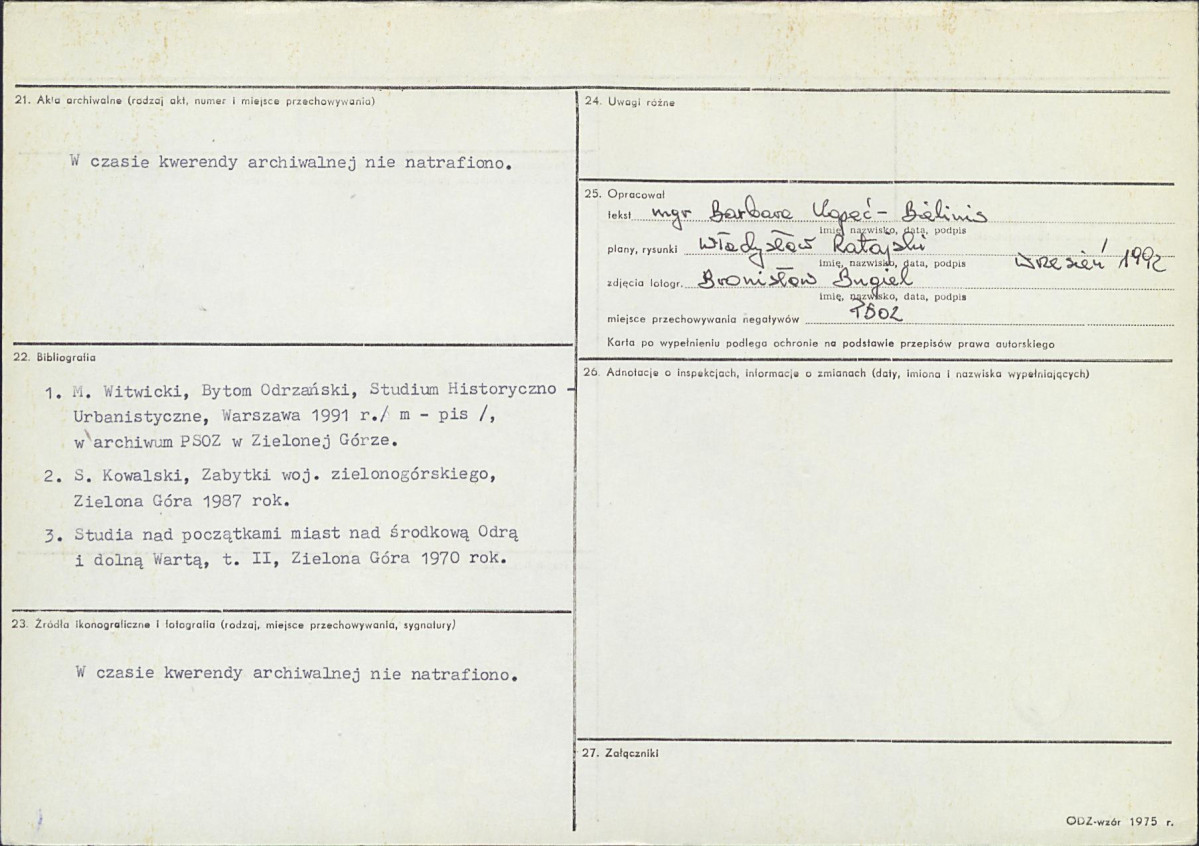 21. Akta archiwalne (rodzaj akt, numer i miejsce przechowywania)
W czasie kwerendy archiwalnej nie natrafiono.
22. Bibliografia
1. M. Witwicki, Bytom Odrzański, Studium Historyczno -
Urbanistyczne, Warszawa 1991 r./ m - pis /,
w archiwum PSOZ w Zielonej Górze.
2. S. Kowalski, Zabytki woj. zielonogórskiego,
Zielona Góra 1987 rok.
3. Studia nad początkami miast nad środkową Odrą
i dolną Wartą, t. II, Zielona Góra 1970 rok.
23. Źródła ikonograficzne i fotografia (rodzaj, miejsce przechowywania, sygnatury)
W czasie kwerendy archiwalnej nie natrafiono.
24. Uwagi różne
25. Opracował
tekst mgr Barbara Kopeć - Bielinis
imię, nazwisko, data, podpis
plany, rysunki Władysław Ratajski
imię, nazwisko, data, podpis
wrzesień 1992
zdjęcia fotogr. Bronisław Bugiel
imię, nazwisko, data, podpis
miejsce przechowywania negatywów
Karta po wypełnieniu podlega ochronie na podstawie przepisów prawa autorskiego
26. Adnotacje o inspekcjach, informacje o zmianach (daty, imiona i nazwiska wypełniających)
27. Załączniki
ODZ-wzór 1975 r.